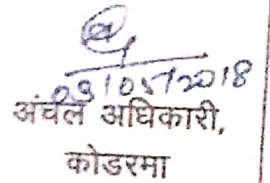 09/05/2018
अंचल अधिकारी,
कोडरमा